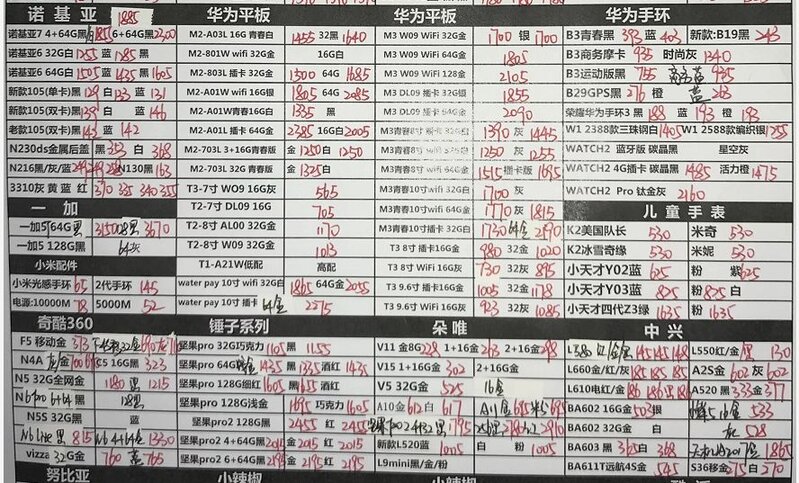 诺基亚 1885
诺基亚7 4+64G黑 1855 6+64G黑 2300
诺基亚6 32G白 1255 蓝 1285 黑
诺基亚6 64G黑 1505 银 1435 蓝 1605
新款105(单卡)黑 129 白 123 蓝 131
新款105(双卡)黑 139 白 蓝 146
老款105(双卡)黑 143 蓝 142
N230ds金属后盖 黑 353 白 368
N216黑/灰/蓝 N130黑 163
3310灰 黄 蓝 红 370 335 340 355
一加
一加5 64G 黑 3150 128黑 3670
一加5 128G黑 64灰
小米配件
小米光感手环 65 2代手环 145
电源:10000M 78 5000M 52
奇酷360
F5 移动金 373
N4A 100 C5 16G黑 323
N5 32G全网金 1180 黑 1215
N6Pro 6+64黑 128黑
N5S 32G黑 蓝
N6 Lite 黑 815 N6 4+64金 1330
vizza 32G金 760 蓝 765
努比亚
华为平板
M2-A03L 16G 青春白 1455 32黑 1640
M2-801W wifi 32G金 16G白
M2-803L 插卡 32G金 1500 64G 1685
M2-A01W wifi 16G银 1805 64G 2085
M2-A01W青春16G白 1335 黑
M2-A01L 插卡 64G金 2385 16G白 2005
M2-703L 3+16G青春版 金 1250 白 1250
M2-703L 32G 青春版 金 1325 白
T3-7寸 WO09 16G灰 565
T2-7寸 DL09 16G 705
T2-8寸 AL00 32G金 1170
T2-8寸 W09 32G金 1013
T1-A21W低配 高配
water pay 10寸 wifi 32G白 1865 64G金 2055
water pay 10寸 插卡 64金 2275
锤子系列
坚果pro 32G巧克力 1105 黑 1155
坚果pro 64G黑 1435 黑 1335 酒红 1435
坚果pro 128G细红 1605 黑 1655 酒红
坚果pro 128G浅金 1695 巧克力 1605
坚果pro2 128G黑 2455 红 2455
坚果pro2 4+64G黑 2015 金 2015 红 2015
坚果pro2 6+64G黑 2195 金 2195 红 2195
小辣椒
华为平板
M3 W09 WiFi 32G金 1700 银 1700
M3 W09 WiFi 64G金 1805
M3 W09 WiFi 128 金 2105
M3 DL09 插卡 32G银 1855
M3 DL09 插卡 64G金 2090
M3青春8寸 插卡 32G金 1390 灰 1445
M3青春8寸 wifi 32G金 1250 灰 1255
M3青春8寸wifi 64G金 1515 插卡版 1695
M3青春10寸wifi 32G白 1700 灰
M3青春10寸wifi 64G金 1770 白 1815
M3青春10寸插卡 32G白 1730 64金 2590
T3 8寸 插卡16G灰 980 32金 1020
T3 8寸 WiFi 16G灰 730 32灰 895
T3 9.6寸 插卡16G金 1005 32金 1178
T3 9.6寸 WiFi 16G灰 923 32灰 1085
朵唯
V11 金8G 228 1+16金 263 2+16金 298
V15 1+16G金 302 2+16G金
V5 32G金 525 16金
A10金 612 白 617 A11金 685 粉 695
新款L520蓝 1015 白 1005
L9mini黑/金/粉
小辣椒
华为手环
B3青春黑 393 蓝 403 新款:B19黑 243
B3商务摩卡 935 时尚灰 1340
B3运动版黑 755 商务蓝 935
B29GPS黑 276 橙 蓝 263
荣耀华为手环3 黑 188 蓝 193 橙 193
W1 2388款三珠钢白 1405 W1 2588款编织银 1255
WATCH2 蓝牙版 碳晶黑 星空灰
WATCH2 4G插卡 碳晶黑 1485 活力橙 1475
WATCH2 Pro 钛金灰 2160
儿童手表
K2美国队长 530 米奇 530
K2冰雪奇缘 530 米妮 530
小天才Y02蓝 625 粉 紫 625
小天才Y03蓝 825 粉 825 白
小天才四代Z3绿 1635 粉 1635
中兴
L580 红/金 145 145 148 L550红/金 黑 130
L660金/红/灰 185 185 185 A2S金 602 灰 602
L610电红/金 186 186 A520 黑 333 金 377
BA602 16G金 503 银 533
BA602 32G金 灰 528
BA603 黑 365 白 368 1865
BA611T远航4S金 545 S36移金 275 白 270